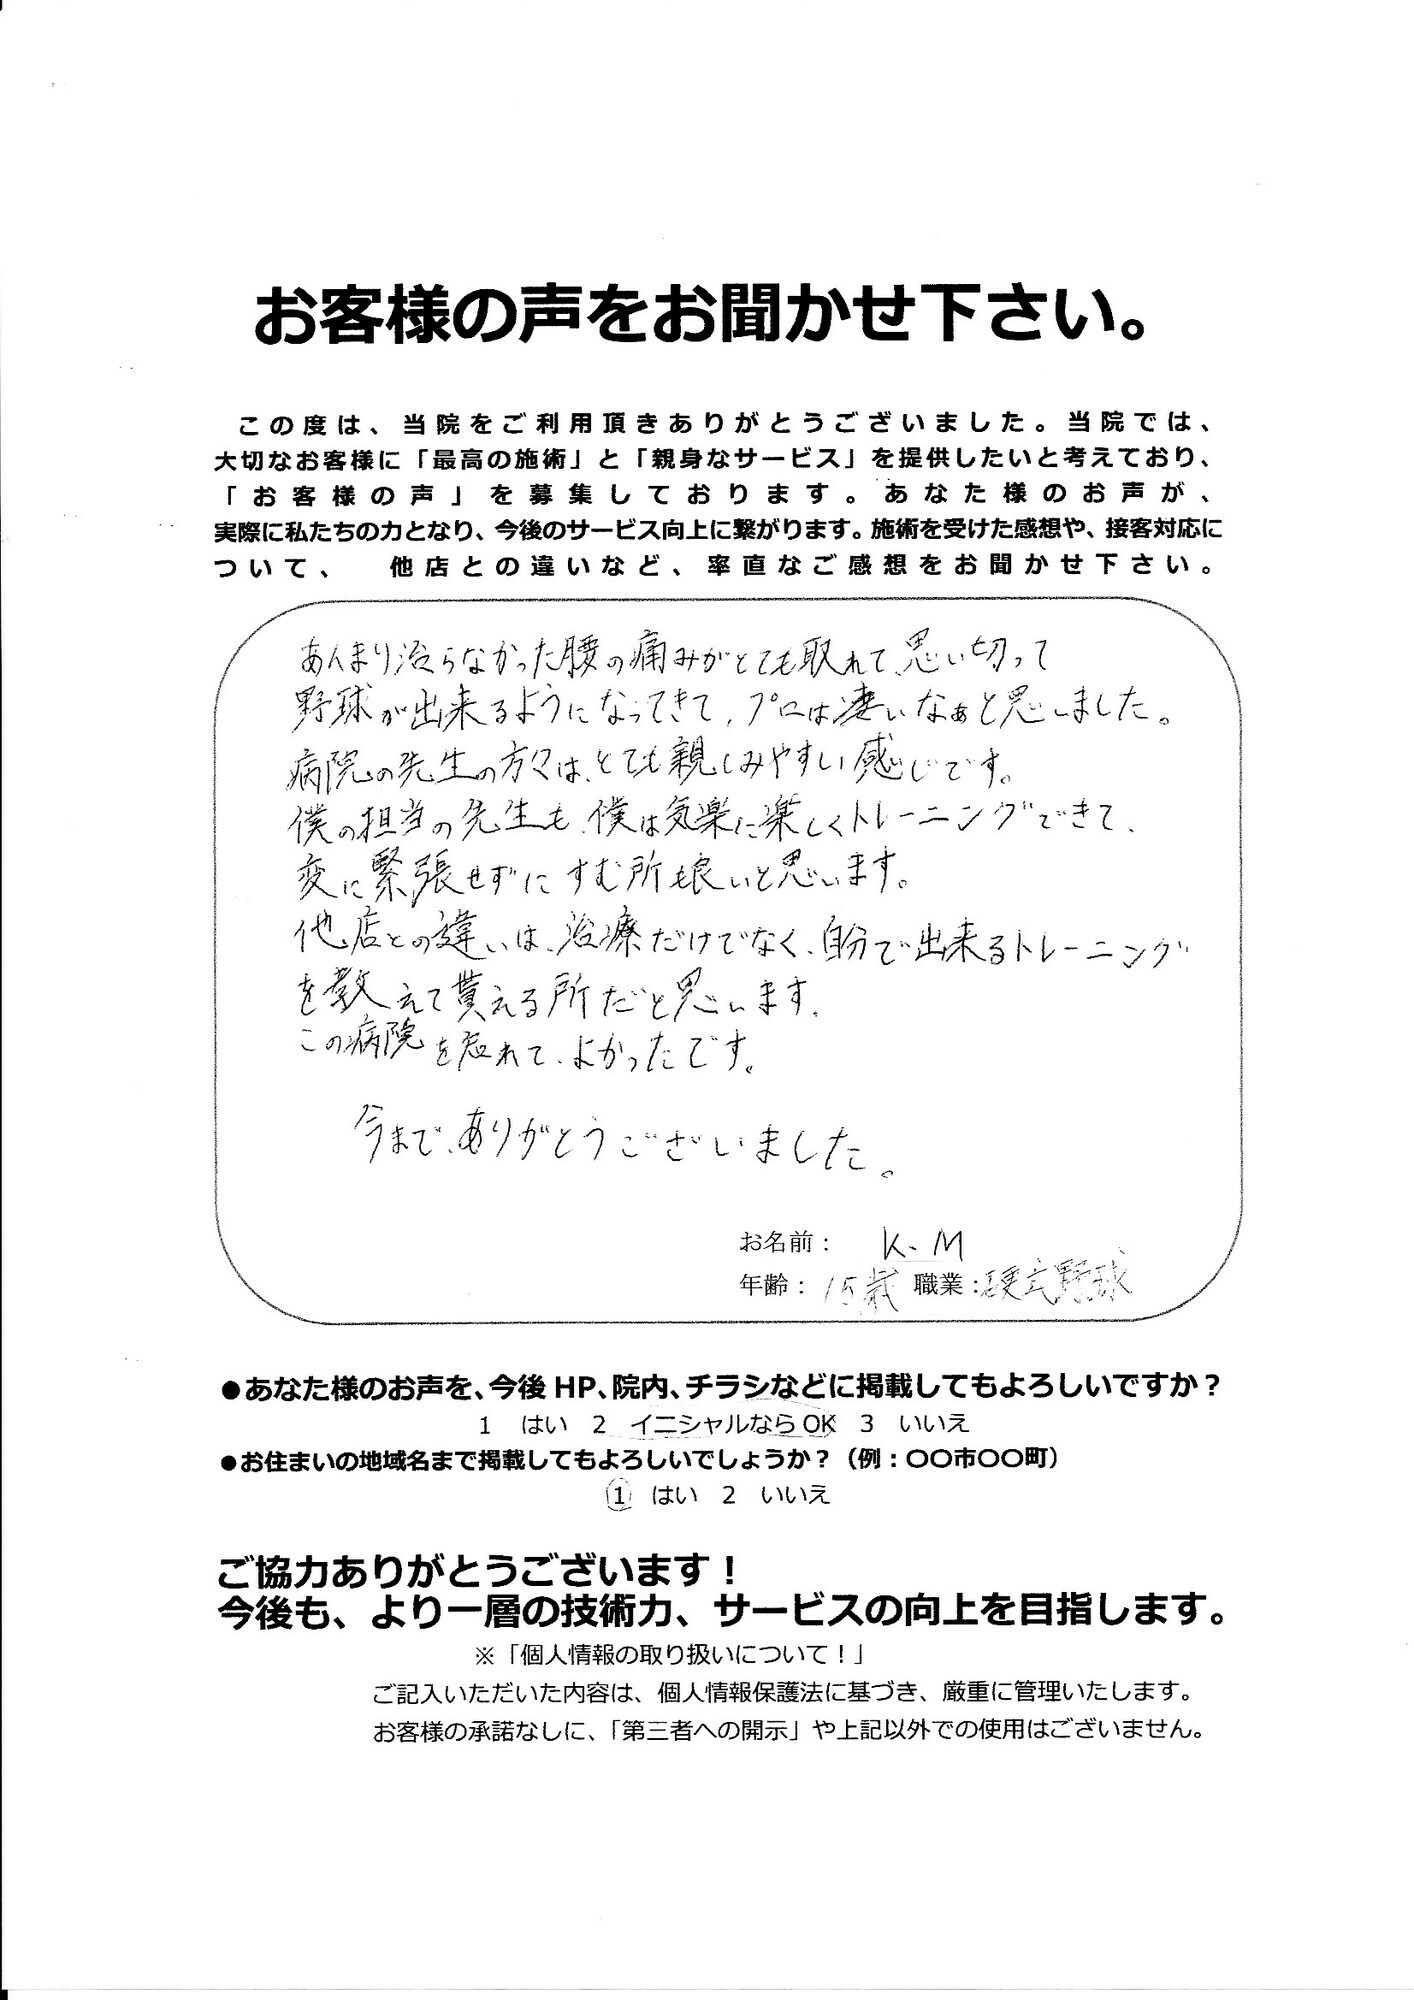 お客様の声をお聞かせ下さい。
この度は、当院をご利用頂きありがとうございました。当院では、
大切なお客様に「最高の施術」と「親身なサービス」を提供したいと考えており、
「お客様の声」を募集しております。あなた様のお声が、
実際に私たちの力となり、今後のサービス向上に繋がります。施術を受けた感想や、接客対応に
ついて、 他店との違いなど、率直なご感想をお聞かせ下さい。
あんまり治らなかった腰の痛みがとても取れて、思い切って
野球が出来るようになってきて、プロは凄いなぁと思いました。
病院の先生の方々は、とても親しみやすい感じです。
僕の担当の先生も、僕は気楽に楽しくトレーニングできて、
変に緊張せずにすむ所も良いと思います。
他店との違いは、治療だけでなく、自分で出来るトレーニング
を教えて貰える所だと思います。
この病院を忘れて、よかったです。
今まで、ありがとうございました。
お名前: K.M
年齢: 15歳 職業:硬式野球
●あなた様のお声を、今後 HP、院内、チラシなどに掲載してもよろしいですか?
1 はい 2 イニシャルなら OK 3 いいえ
●お住まいの地域名まで掲載してもよろしいでしょうか?(例:〇〇市〇〇町)
1 はい 2 いいえ
ご協力ありがとうございます!
今後も、より一層の技術力、サービスの向上を目指します。
※「個人情報の取り扱いについて!」
ご記入いただいた内容は、個人情報保護法に基づき、厳重に管理いたします。
お客様の承諾なしに、「第三者への開示」や上記以外での使用はございません。